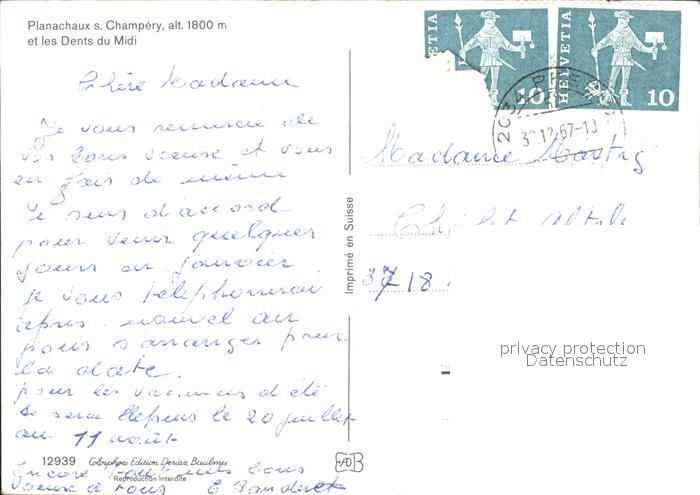 Planachaux s. Champéry, alt. 1800 m
et les Dents du Midi
Chère Madame
Je vous remercie de
vos bons voeux et vous
en fais de même
Je suis d'accord
pour venir quelques
jours en janvier
je vous telephonerai
après nouvel an
pour s'arranger pour
la date.
pour les vacances d'été
se sera
le 20 juillet
au 11 août
Encore tout mes bons
voeux à tous E Banderet
12939 Colorphoto Edition Deriaz Baulmes
Reproduction interdite
Imprimé en Suisse
HELVETIA 10
HELVETIA 10
30.12.67-10
Madame
Chalet
3718
privacy protection
Datenschutz